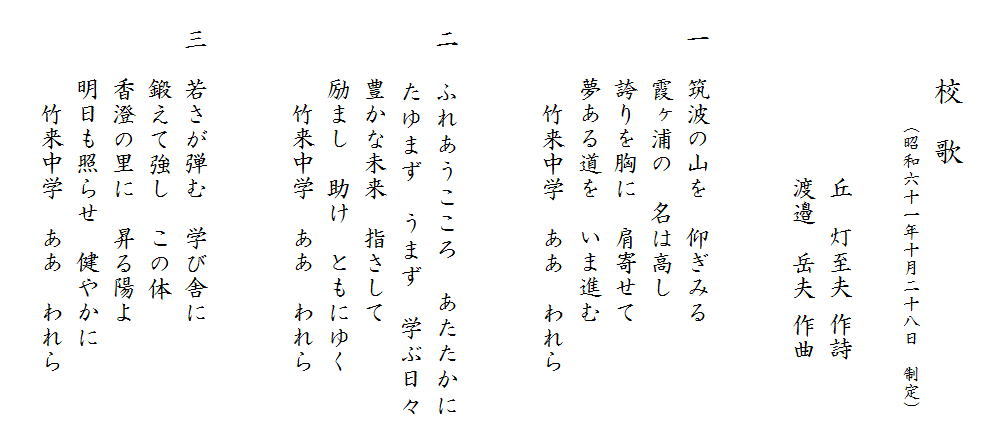 校歌
（昭和六十一年十月二十八日 制定）
丘 灯至夫 作詩
渡邉 岳夫 作曲
一
筑波の山を 仰ぎみる
霞ヶ浦の 名は高し
誇りを胸に 肩寄せて
夢ある道を いま進む
竹来中学 ああ われら
二
ふれあうこころ あたたかに
たゆまず うまず 学ぶ日々
豊かな未来 指さして
励まし 助け ともにゆく
竹来中学 ああ われら
三
若さが弾む 学び舎に
鍛えて強し この体
香澄の里に 昇る陽よ
明日も照らせ 健やかに
竹来中学 ああ われら